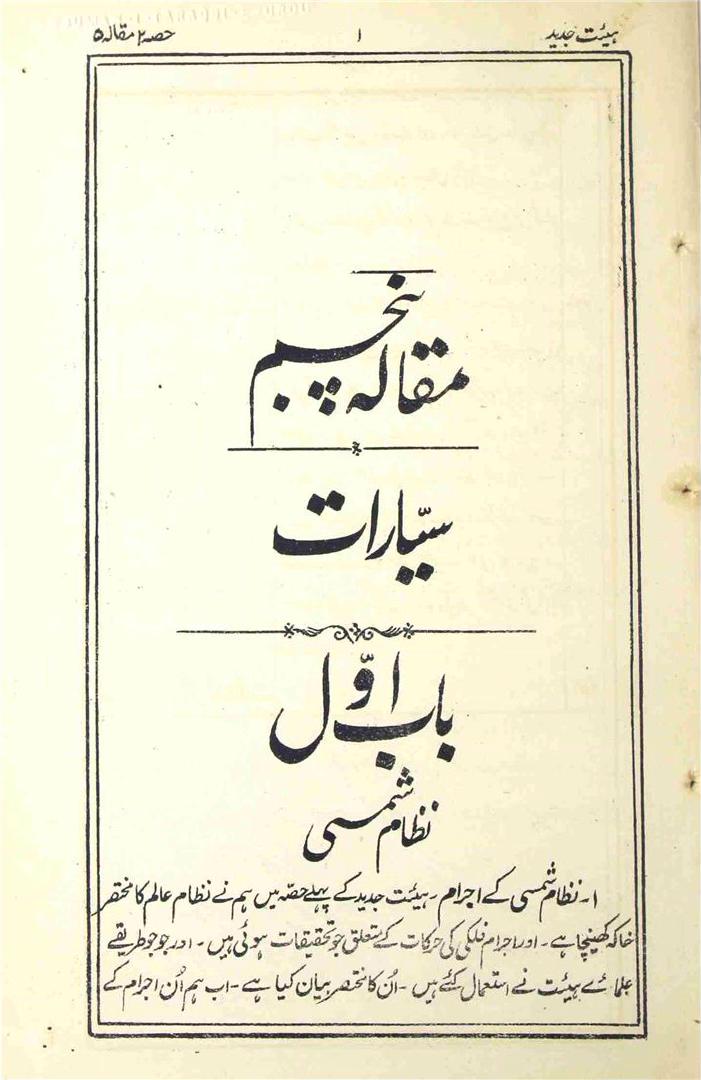 ہیئت جدید ۱ حصہ ۲ مقالہ ۵
مقالہ پنجم
سیّارات
باب اوّل
نظام شمسی
۱۔ نظام شمسی کے اجرام ۔ ہیئت جدید کے پہلے حصّہ میں ہم نے نظام عالم کا مختصر
خاکہ کھینچا ہے ۔ اور اجرام فلکی کی حرکات کے متعلق جو تحقیقات ہوئی ہیں ۔ اور جو جو طریقے
علمائے ہیئت نے استعمال کئے ہیں ۔ اُن کا مختصر بیان کیا ہے ۔ اب ہم اُن اجرام کے